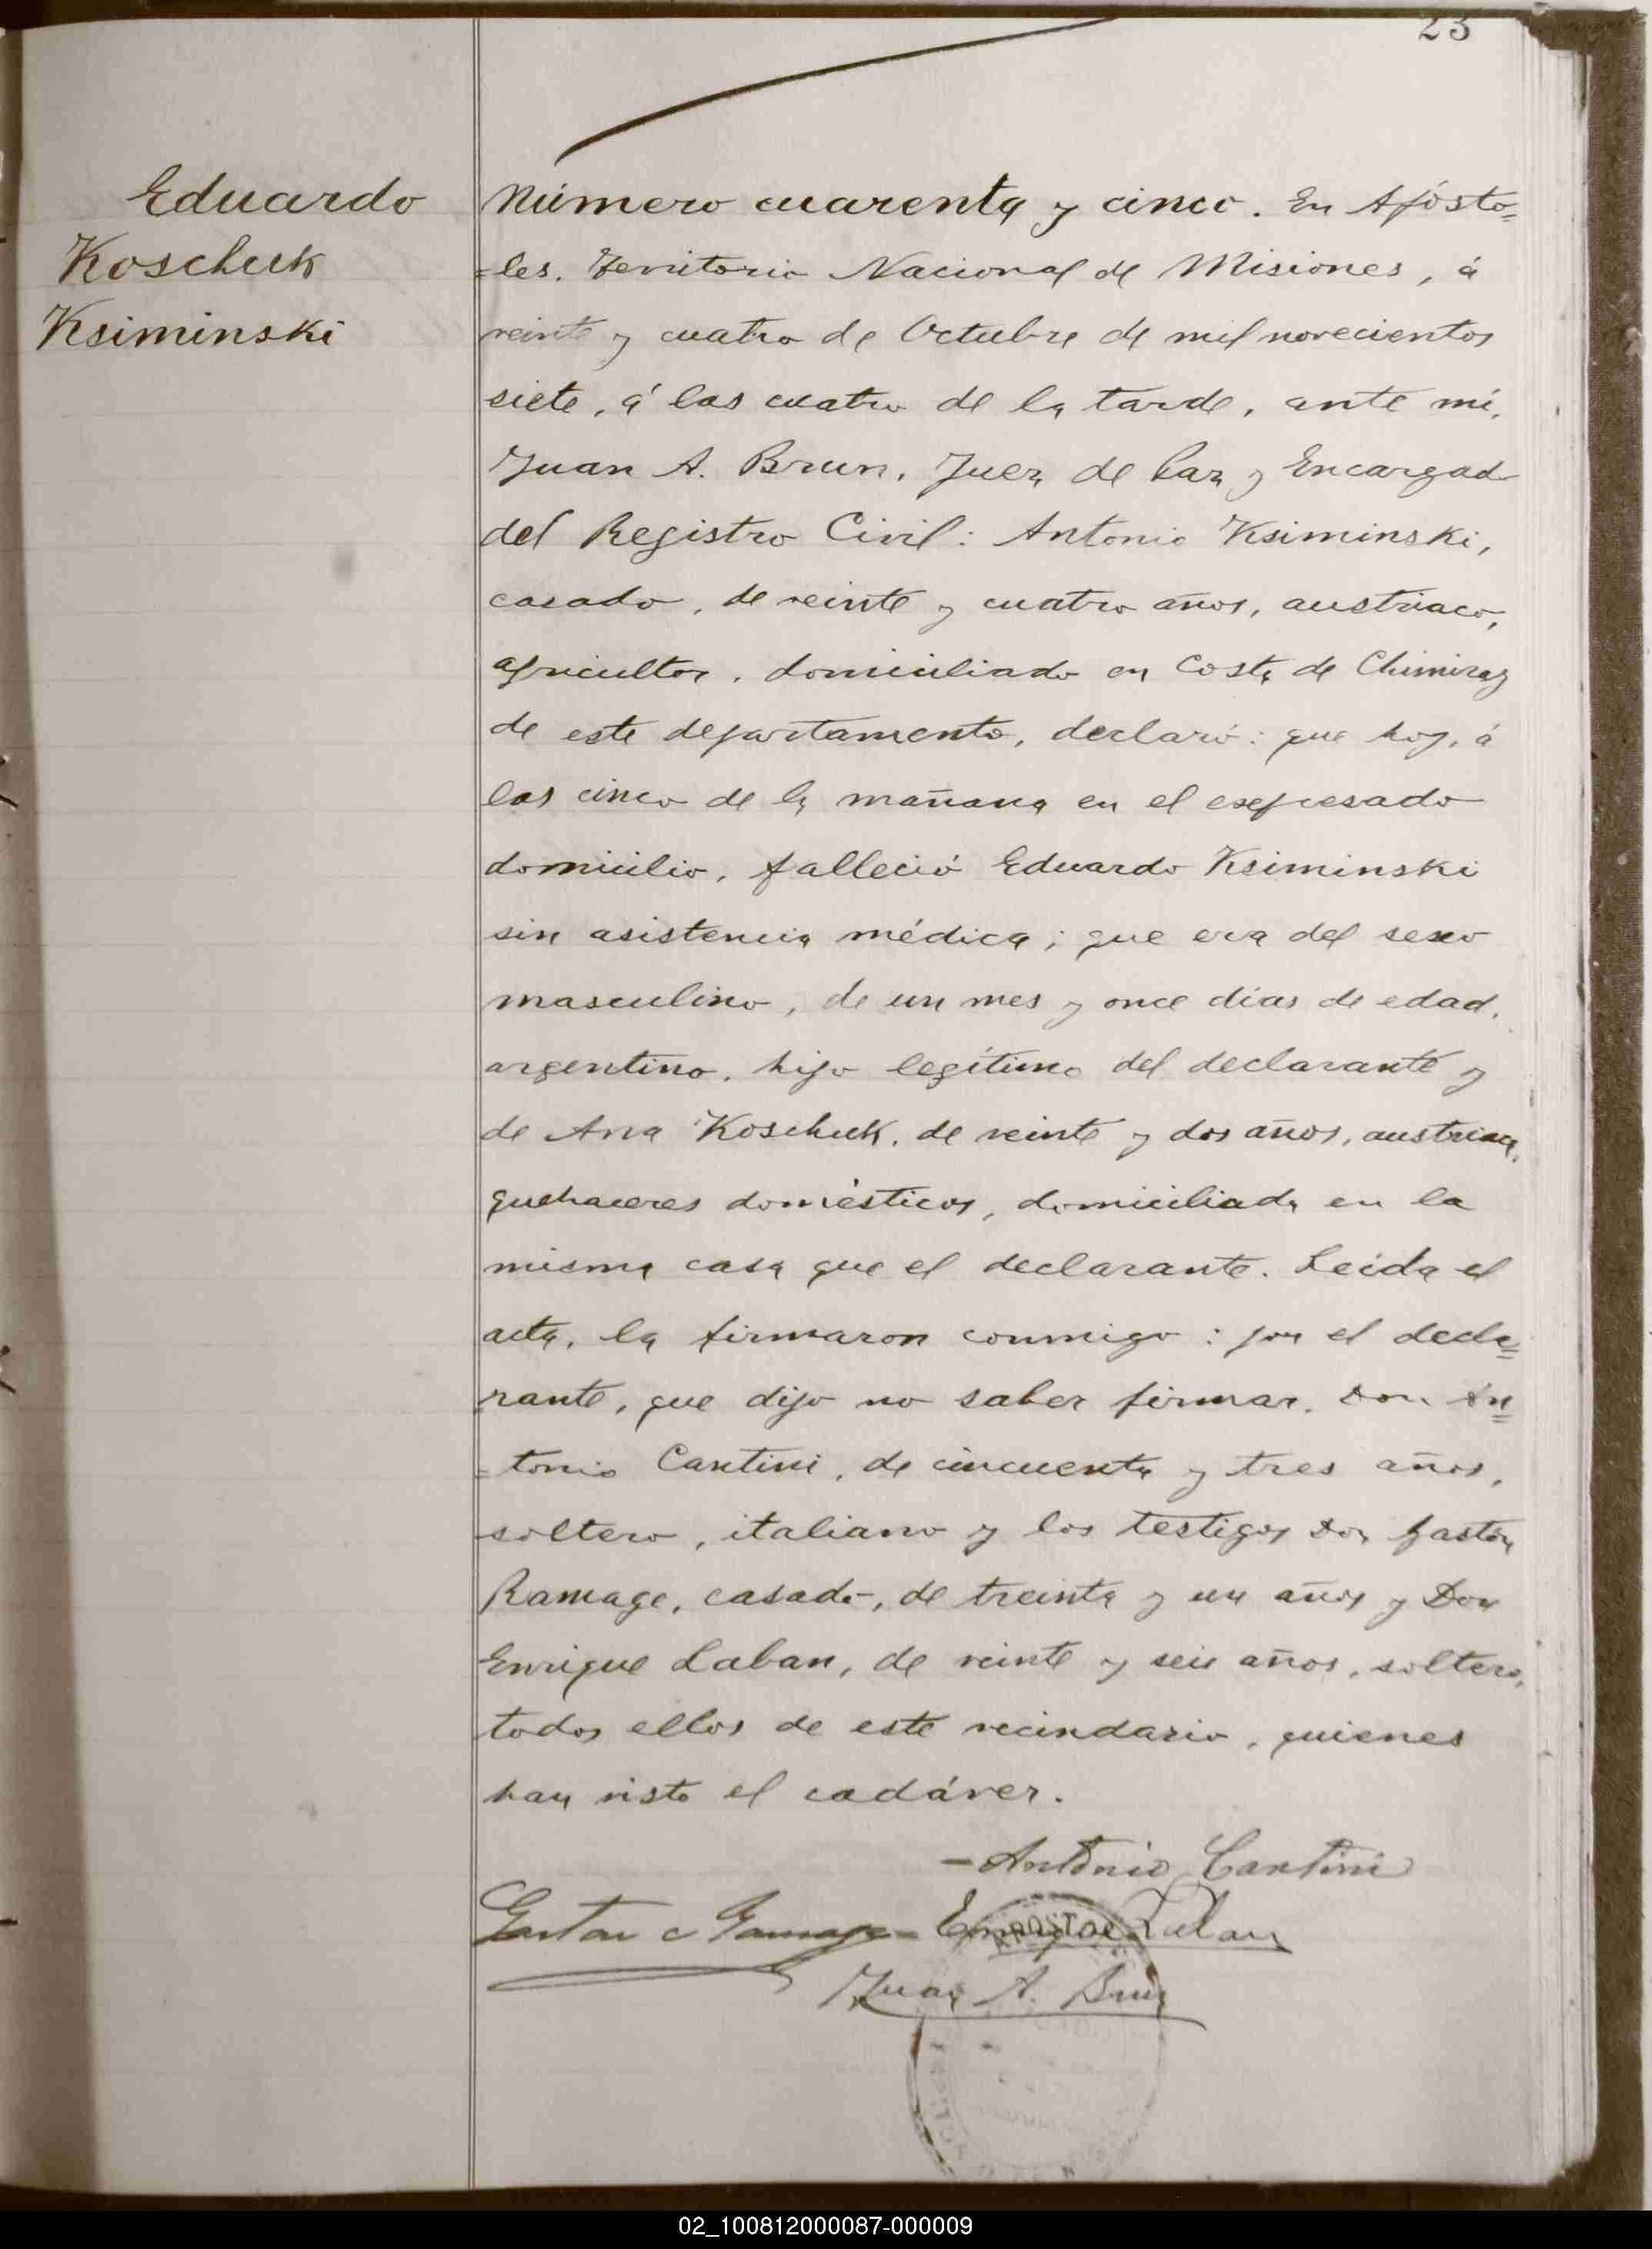 23
Eduardo
Koschuk
Ksiminski
Número cuarenta y cinco. En Apósto=
=les. Territorio Nacional de Misiones, á
veinte y cuatro de Octubre de mil novecientos
siete, á las cuatro de la tarde, ante mí,
Juan A. Brun, Juez de Paz y Encargado
del Registro Civil: Antonio Ksiminski,
casado, de veinte y cuatro años, austriaco,
agricultor, domiciliado en Costa de Chimiray
de este departamento, declaró: que hoy, á
las cinco de la mañana en el expresado
domicilio, falleció Eduardo Ksiminski
sin asistencia médica; que era del sexo
masculino, de un mes y once días de edad,
argentino, hijo legítimo del declarante y
de Ana Koschuk, de veinte y dos años, austriaca,
quehaceres domésticos, domiciliada en la
misma casa que el declarante. Leida el
acta, la firmaron conmigo: por el decla=
rante, que dijo no saber firmar, Don An=
=tonio Cantini, de cincuenta y tres años,
soltero, italiano y los testigos Don Gastón
Ramage, casado, de treinta y un años y Don
Enrique Laban, de veinte y seis años, soltero,
todos ellos de este vecindario, quienes
han visto el cadáver.
Antonio Cantini
Gaston Ramage Enrique Laban
Juan A. Brun
02_100812000087-000009